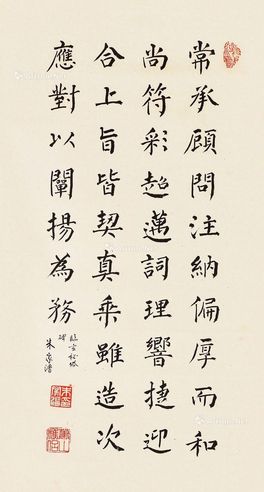 常承顧問注納偏厚而和
尚符彩超邁詞理響捷迎
合上旨皆契真乘雖造次
應對以闡揚為務
臨玄秘塔
碑
朱家溍